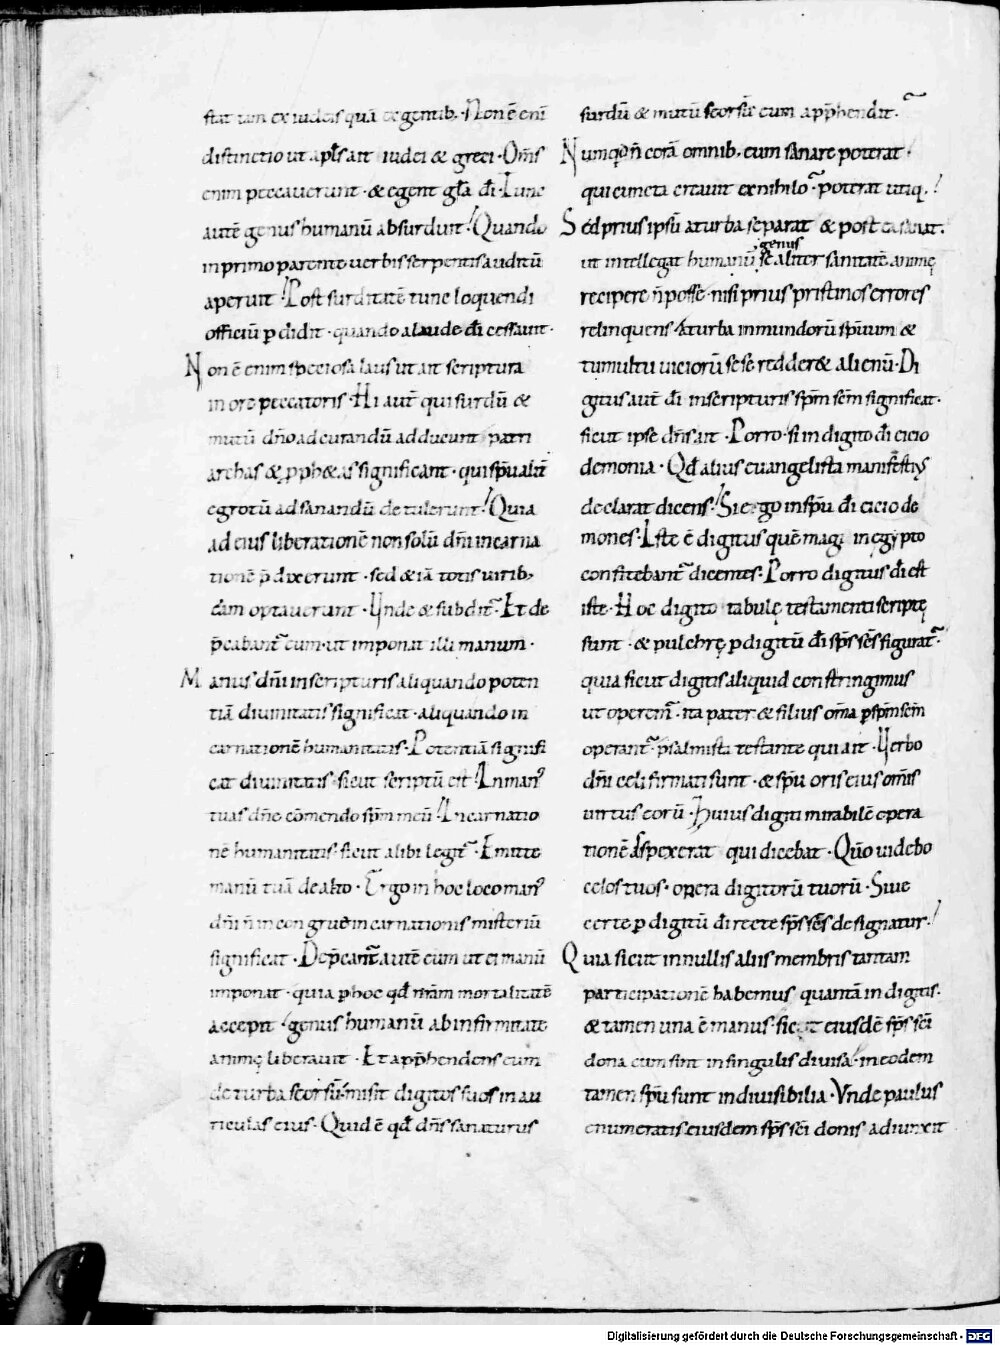 stat tam ex iudeis quā ex gentib;. Non ē enī
distinctio ut apl̄s ait iudei & greci. Om̄s
enim peccauerunt. & egent gl̄a dī. Tunc
autē genus humanū absurduit! Quando
in primo parente uerbis serpentis auditū
aperuit! Post surditatē tunc loquendi
officiū p̱didit. quando a laude dī cessauit.
Non ē enim speciosa laus ut ait scriptura
in ore peccatoris. Hi aut̄ qui surdū &
mutū dn̄o ad curandū adducunt patri
archas & p̱ph&as significant. qui spūalit̄
egrotū ad sanandū detulerunt! Quia
ad eius liberationē non solū dn̄i incarna
tionē p̄dixerunt. sed & iā totis uirib;
eam optauerunt. Unde & subdit̃. Et de
p̄cabant̃ eum ut imponat illi manum.
Manus dn̄i in scripturis aliquando poten
tiā diuinitatis significat. aliquando in
carnationē humanitatis. Potentiā signifi
cat diuinitatis. sicut scriptū est! In man⁹
tuas dn̄e cōmendo spm̄ meū! Incarnatio
nē humanitatis. sicut alibi legit̃. Emitte
manū tuā de alto. Ergo in hoc loco man⁹
dn̄i ñ incongruẹ incarnationis misteriū
significat. Dep̄cant̃ autē eum ut ei manū
imponat. quia p̱ hoc qd̄ nr̄am mortalitatē
accepit! genus humanū ab infirmitate
animę liberauit. Et app̱hendens eum
de turba seorsū. misit digitos suos in au
riculas eius. Quid ē qd̄ dn̄s sanaturus
surdū & mutū seorsū eum app̱hendit.̃
Numqd̄ ñ corā omnib; eum sanare poterat.̃
qui cuncta creauit ex nihilo.̃ poterat utiq;!
Sed prius ipsū a turba separat & postea sanat.
ut intellegat humanū genus se aliter sanitatē animę
recipere ñ posse. nisi prius pristinos errores
relinquens. a turba inmundorū spūum &
tumultu uiciorū sese redder& alienū. Di
gitus aut̄ dī in scripturis spm̄ scm̄ significat.
sicut ipse dn̄s ait. Porro. si in digito dī eicio
demonia. Qd̄ alius euangelista manifestiꝰ
declarat dicens! Si ergo in spū dī eicio de
mones. Iste ē digitus quē magi in egypto
confitebant̃ dicentes. Porro digitus dī est
iste. Hoc digito tabulę testamenti scriptę
sunt. & pulchrę p̱ digitū dī sps̄ scs̄ figurat.̃
quia sicut digitis aliquid constringimus
ut operem̃. ita pater & filius om̄a p̱ spm̄ scm̄
operant̃. psalmista testante qui ait. Uerbo
dn̄i celi firmati sunt. & spū oris eius om̄is
uirtus eorū. Huius digiti mirabilē opera
tionē aspexerat qui dicebat. Qm̄ uidebo
celos tuos. opera digitorū tuorū. Siue
certe p̱ digitū dī recte sps̄ scs̄ designatur!
Quia sicut in nullis aliis membris tantam
participationē habemus quantā in digitis.
& tamen una ē manus. sicut eiusdē sps̄ scī
dona cum sint in singulis diuisa. in eodem
tamen spū sunt indiuisibilia. Vnde paulus
enumeratis eiusdem sps̄ scī donis adiunxit
Digitalisierung gefördert durch die Deutsche Forschungsgemeinschaft - DFG